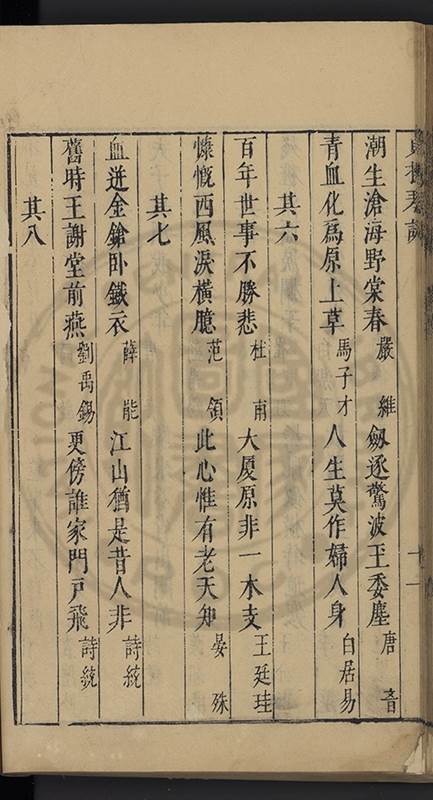 潮生滄海野棠春嚴維劔逐驚波玉委塵唐音
青血化爲原上草馬子才人生莫作婦人身白居易
其六
百年世事不勝悲杜甫大厦原非一木支王廷珪
慷慨西風淚橫臆范領此心惟有老天知晏殊
其七
血迸金鎗卧鐵衣薛能江山猶是昔人非詩統
舊時王謝堂前燕劉禹錫更傍誰家門戸飛詩統
其八